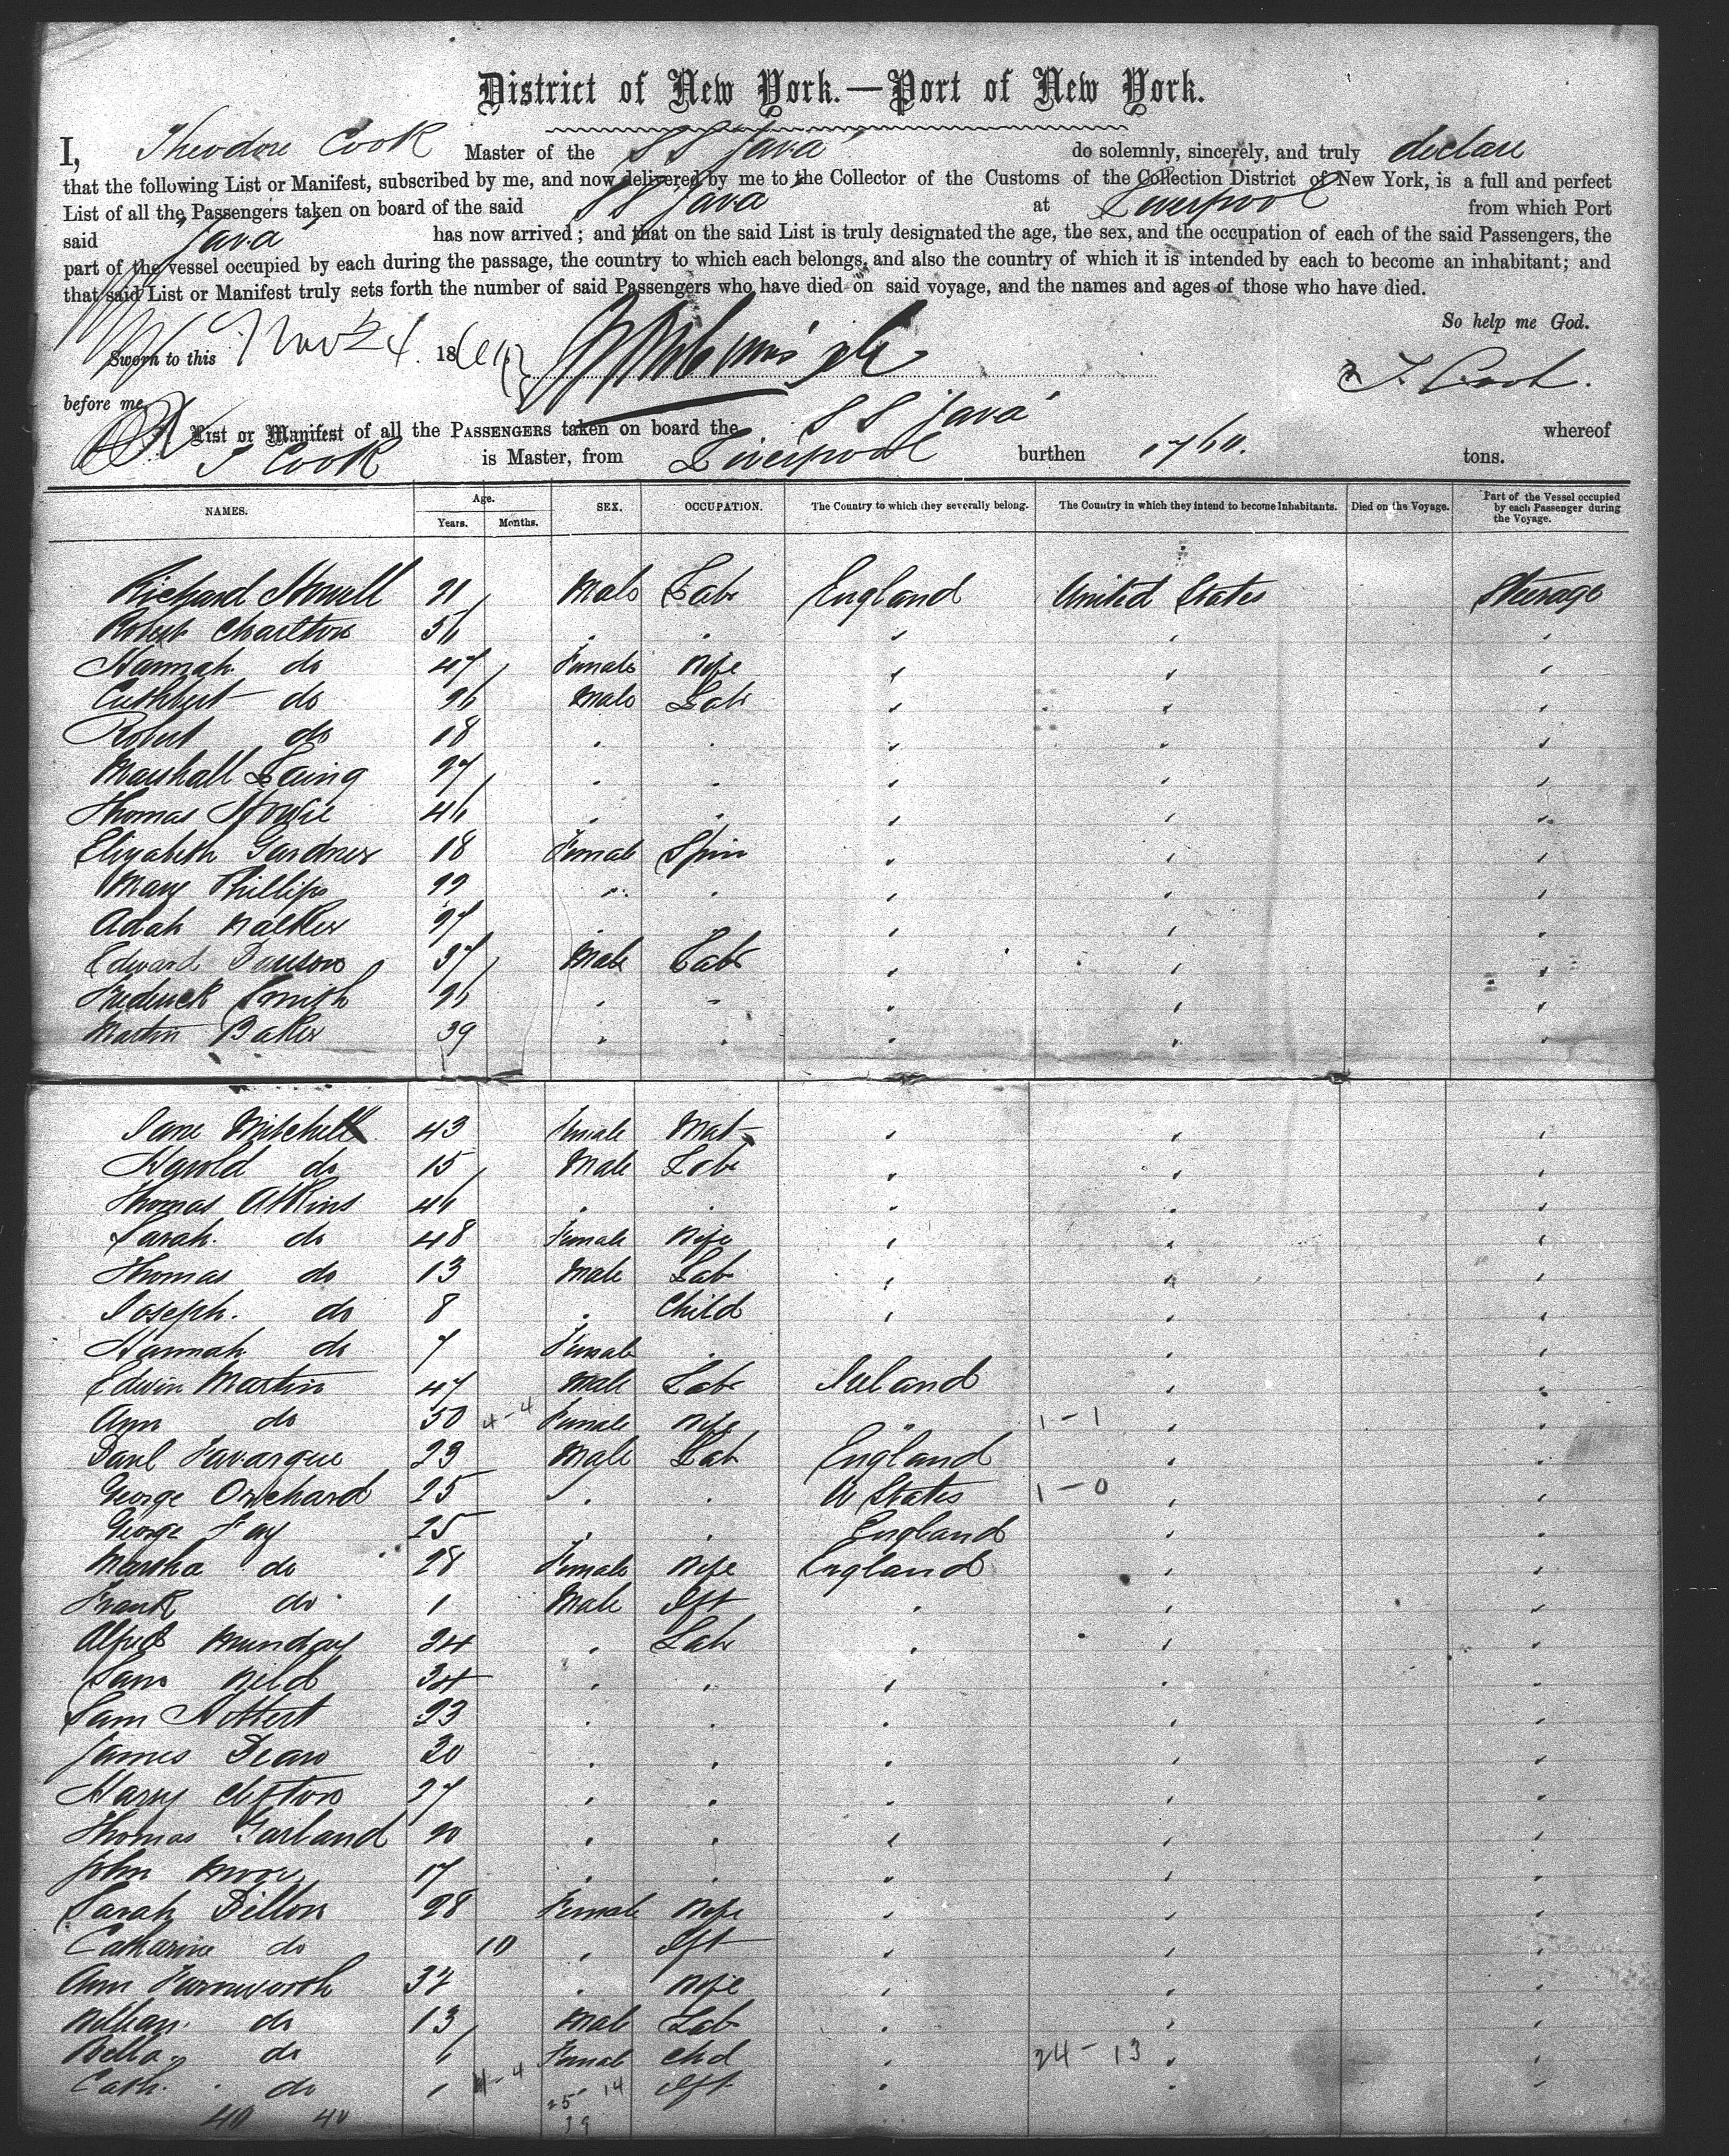 District of New York.—Port of New York.
I, Theodore Cook Master of the SS Java do solemnly, sincerely, and truly declare
that the following List or Manifest, subscribed by me, and now delivered by me to the Collector of the Customs of the Collection District of New York, is a full and perfect
List of all the Passengers taken on board of the said SS Java at Liverpool from which Port
said Java has now arrived; and that on the said List is truly designated the age, the sex, and the occupation of each of the said Passengers, the
part of the vessel occupied by each during the passage, the country to which each belongs, and also the country of which it is intended by each to become an inhabitant; and
that said List or Manifest truly sets forth the number of said Passengers who have died on said voyage, and the names and ages of those who have died.
So help me God.
Sworn to this 18 T. Cook.
before me,
List or Manifest of all the PASSENGERS taken on board the SS Java whereof
T Cook is Master, from Liverpool burthen 1760. tons.
NAMES. Age. Years. Months. SEX. OCCUPATION. The Country to which they severally belong. The Country in which they intend to become Inhabitants. Died on the Voyage. Part of the Vessel occupied by each Passenger during the Voyage.
Richard 21 Male Lab England United States Steerage
Robert Charlton 56
Hannah do 47 Female Wife
Cuthbert do 26 Male Lab
Robert do 18
Marshall Laing 27
Thomas 46
Elizabeth Gardner 18 Female Spin
Mary Phillips 22
Adah Walker 27
Edward 37 Male Lab
Frederick Smith 26
Martin Baker 39
Jane Mitchell 43 Female Mat
Harold do 15 Male Lab
Thomas Atkins 46
Sarah do 48 Female Wife
Thomas do 13 Male Lab
Joseph do 8 Child
Hannah do 7 Female
Edwin Martin 47 Male Lab Ireland
Ann do 50 4-4 Female Wife " 1-1
Paul Favarque 23 Male Lab England
George Orchard 25 U States 1-0
George Fay 25 England
Martha do 28 Female Wife England
Frank do 1 Male Ift
Alfred Munday 24 Lab
Sam Wild 34
Sam 23
James Dean 20
Harry Clifton 27
Thomas Garland 20
John Moore 17
Sarah Dillon 28 Female Wife
Catharine do 10 Ift
Ann Farnworth 32 Wife
William do 13 Male Lab
Bella do Female Chd 24-13
Cath. do 4-4 25 14 Ift
40 40 39